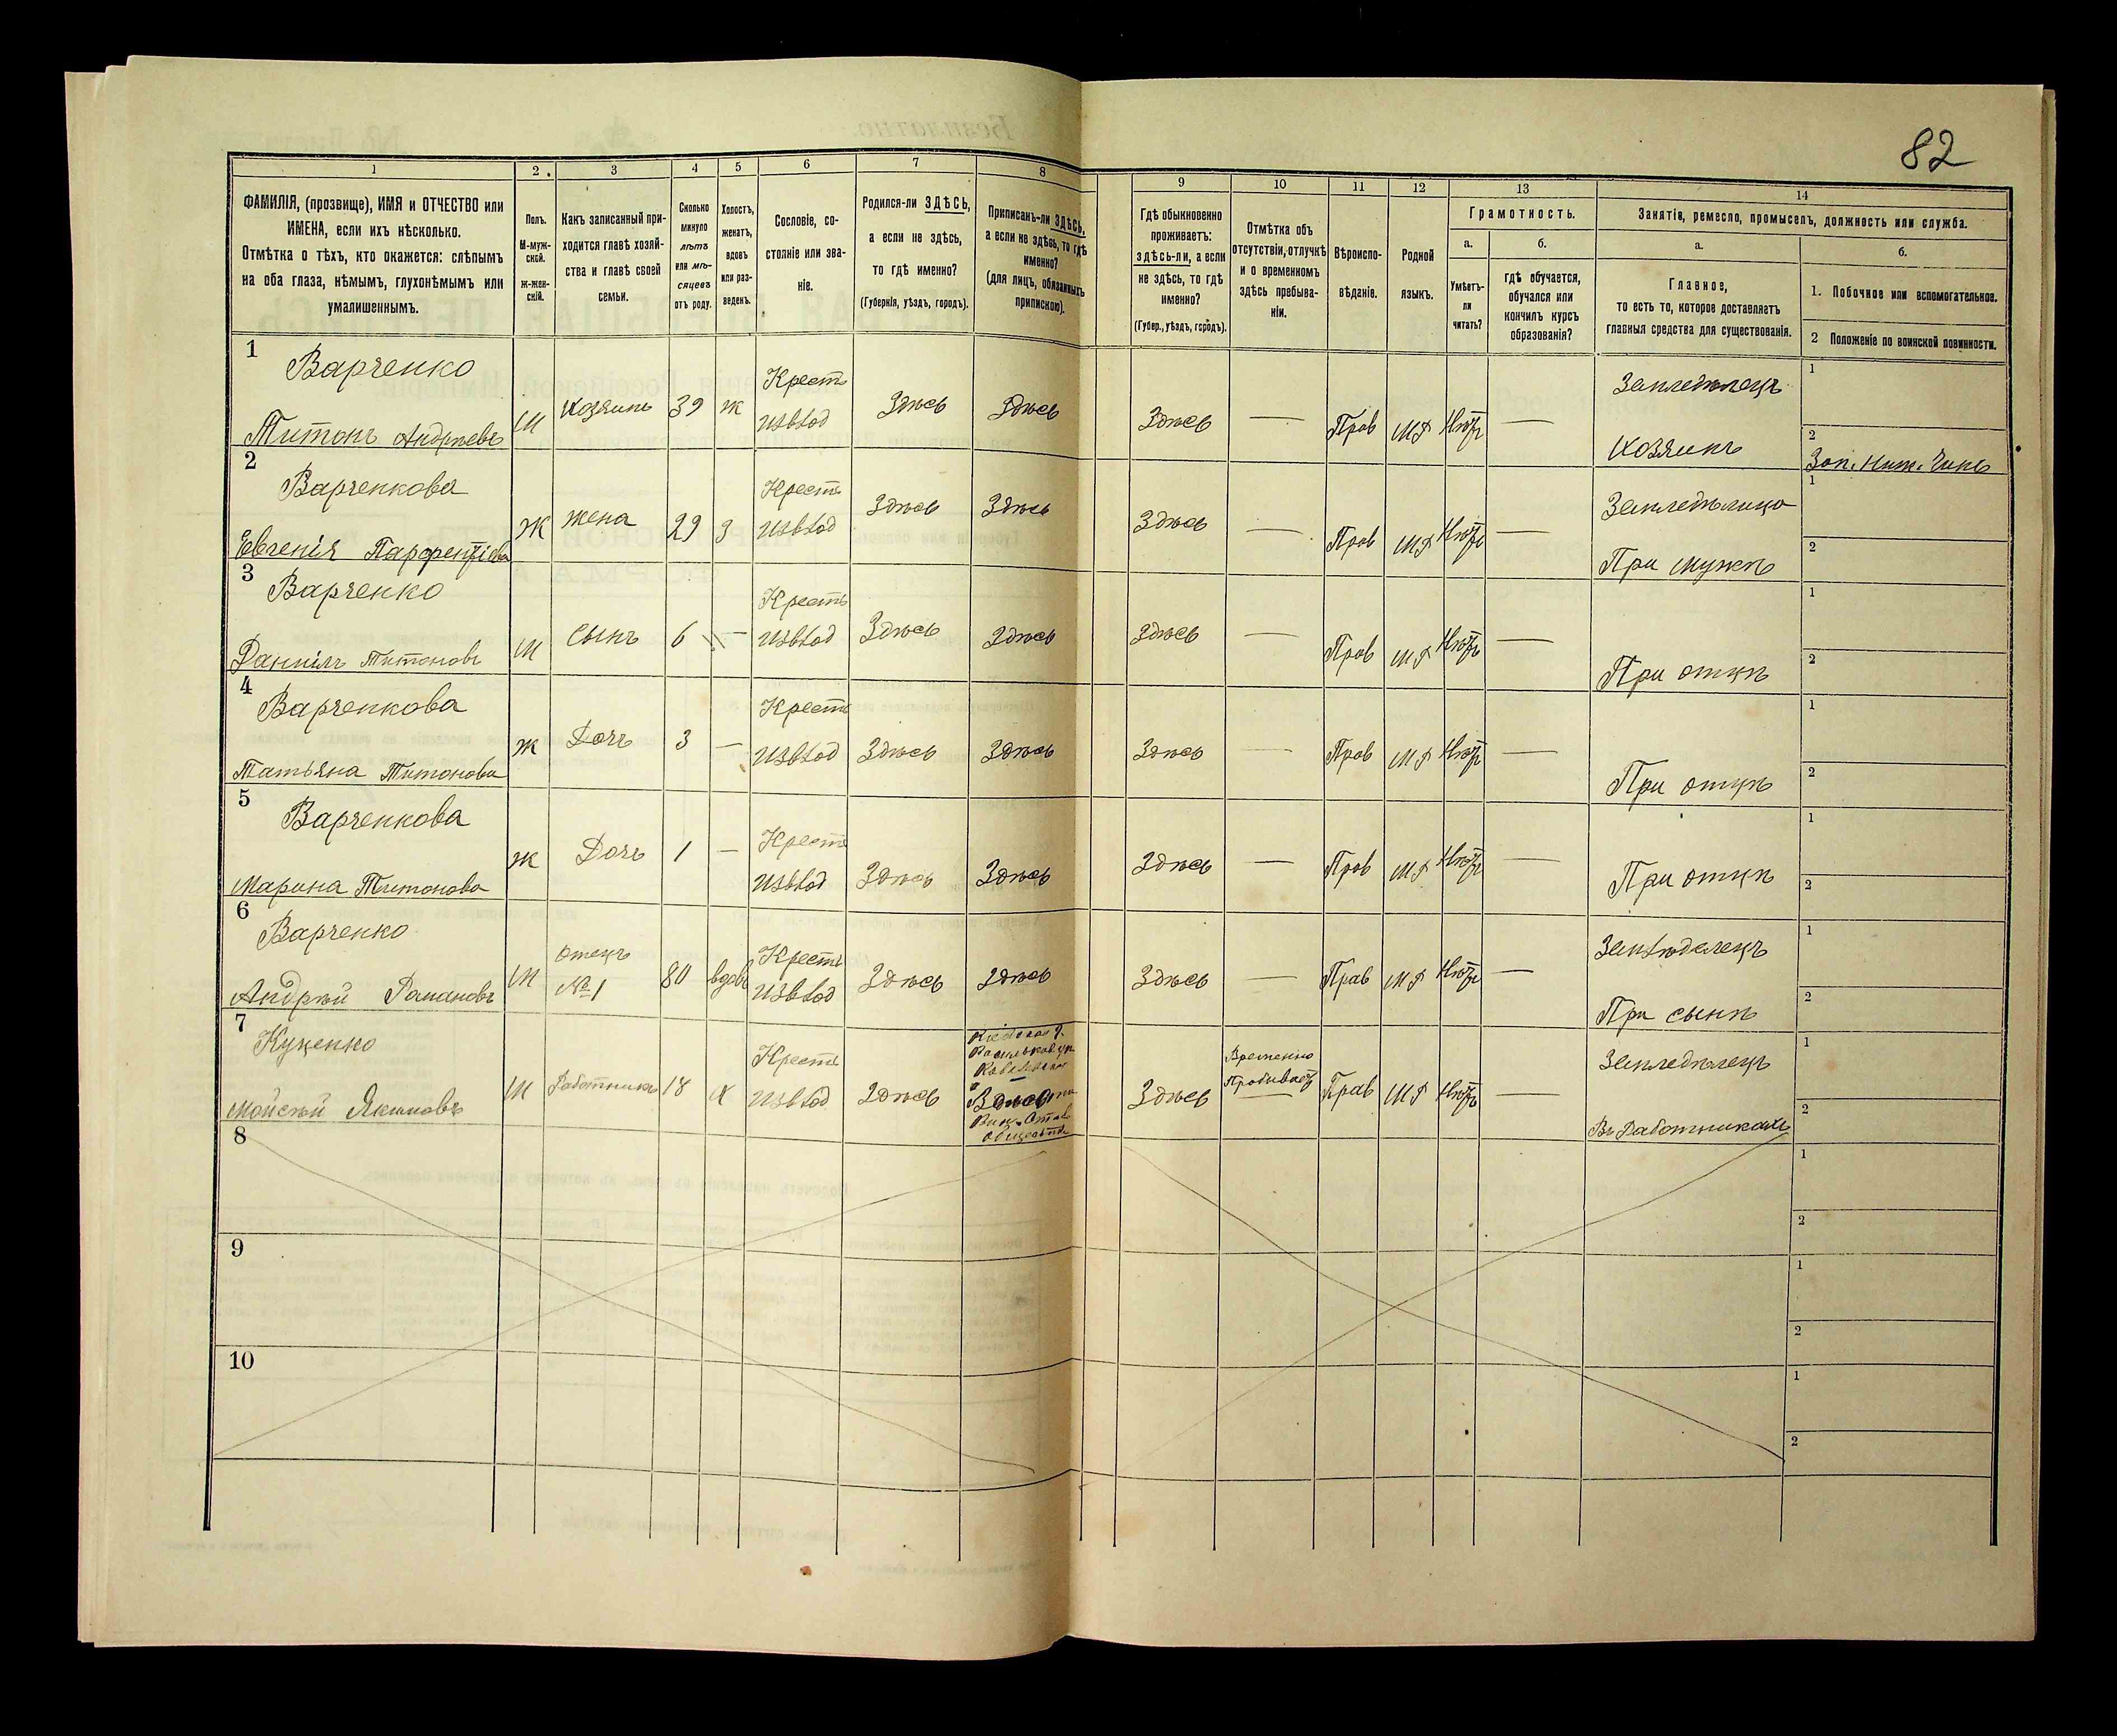 82
1
2
3
4
5
6
7
8
9
10
11
12
13
14
ФАМИЛІЯ, (прозвище), ИМЯ и ОТЧЕСТВО или
ИМЕНА, если ихъ нѣсколько.
Отмѣтка о тѣхъ, кто окажется: слѣпымъ
на оба глаза, нѣмымъ, глухонѣмымъ или
умалишеннымъ.
Полъ.
М-муж-
ской.
ж-жен-
скій.
Какъ записанный при-
ходится главѣ хозяй-
ства и главѣ своей
семьи.
Сколько
минуло
лѣтъ
или мѣ-
сяцевъ
отъ роду.
Холостъ,
женатъ,
вдовъ
или раз-
веденъ.
Сословіе, со-
стояніе или зва-
ніе.
Родился-ли ЗДѢСЬ,
а если не здѣсь,
то гдѣ именно?
(Губернія, уѣздъ, городъ).
Приписанъ-ли ЗДѢСЬ,
а если не здѣсь, то гдѣ
именно?
(для лицъ, обязанныхъ
припискою).
Гдѣ обыкновенно
проживаетъ:
здѣсь-ли, а если
не здѣсь, то гдѣ
именно?
(Губер., уѣздъ, городъ).
Отмѣтка объ
отсутствіи, отлучкѣ
и о временномъ
здѣсь пребыва-
ніи.
Вѣроиспо-
вѣданіе.
Родной
языкъ.
Грамотность.
а.
б.
Умѣетъ-
ли
читать?
гдѣ обучается,
обучался или
кончилъ курсъ
образованія?
Занятія, ремесло, промыселъ, должность или служба.
а.
б.
Главное,
то есть то, которое доставляетъ
главныя средства для существованія.
1. Побочное или вспомогательное.
2 Положеніе по воинской повинности.
1
Варченко
Титонъ Андрѣевъ
М
Хозяинъ
39
ж
Крест
Здѣсь
Здѣсь
Здѣсь
—
Прав
Нѣтъ
—
Земледѣлецъ
Хозяинъ
1
2
Зап. Ниж. Чинъ
2
Варченкова
Евгенія
Ж
жена
29
З
Крест
Здѣсь
Здѣсь
Здѣсь
—
Прав
Нѣтъ
—
При мужѣ
1
2
3
Варченко
Даніилъ Титоновъ
М
Сынъ
6
—
Крест
Здѣсь
Здѣсь
Здѣсь
—
Прав
Нѣтъ
—
При отцѣ
1
2
4
Варченкова
Татьяна Титонова
Ж
Дочь
3
—
Крест
Здѣсь
Здѣсь
Здѣсь
—
Прав
Нѣтъ
—
При отцѣ
1
2
5
Варченкова
Марина Титонова
Ж
Дочь
1
—
Крест
Здѣсь
Здѣсь
Здѣсь
—
Прав
Нѣтъ
—
При отцѣ
1
2
6
Варченко
Андрѣй Романовъ
М
отецъ
№ 1
80
вдовъ
Крест
Здѣсь
Здѣсь
Здѣсь
—
Прав
Нѣтъ
—
При сынѣ
1
2
7
Куценко
Мойсѣй Якимовъ
М
Работникъ
18
Х
Крест
Здѣсь
Здѣсь
Временно
Прав
Нѣтъ
—
Земледѣлецъ
Въ Работникахъ
1
2
8
1
2
9
1
2
10
1
2